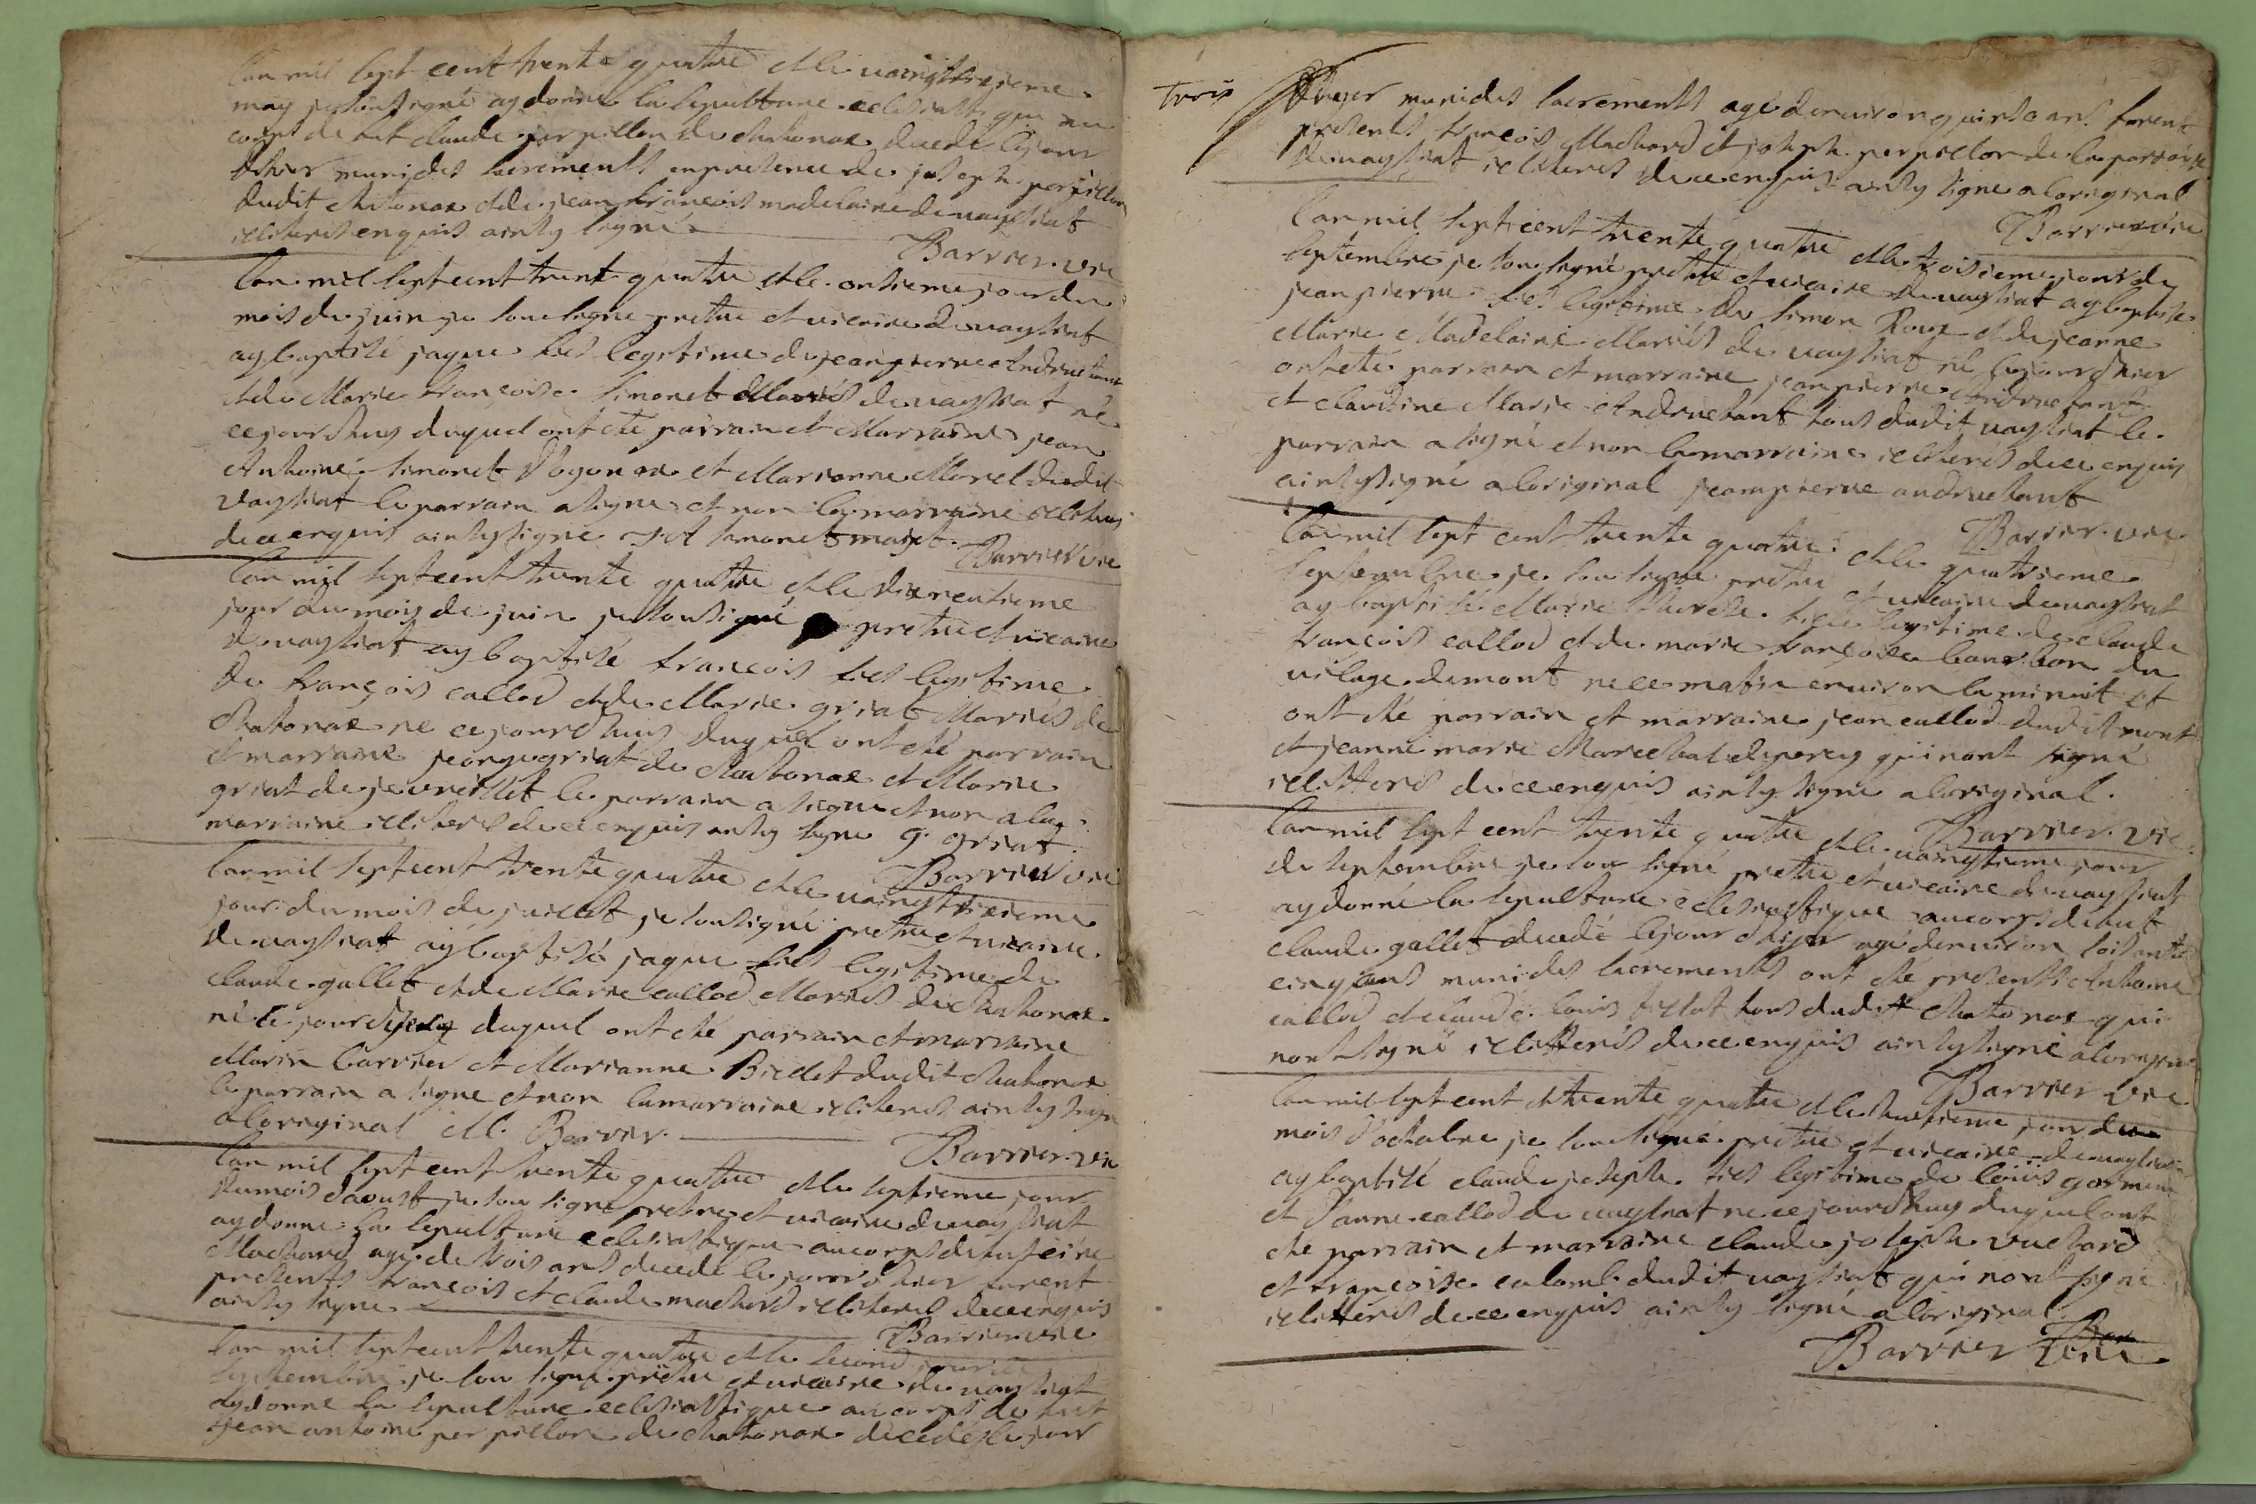 Lan mil sept cent trente quatre et le vaingttroisieme
may je sousigné ay donné la sepulture eclesiastique au
corps de fut claude perpillon de chatonax decedé le jour
dhier munides sacrements en presence de joseph perpillon
dudit chatonax et de jean françois madelaine de vaysiat
illiteres enquis ainsy signé
Barrier vic
Lan mil sept cent trent quatre et le onsieme jour du
mois de juin je sousigné pretre et vicaire de vaysiat
ay baptisé jaque fils legitime de jean pierre Andruetant
et de Marie françoise simonet Mariés de vaysiat né
cejourdhuy duquel ont été parrain et Marraine jean
Anthoine simonet Dogonax et Marianne Morel dudit
vaysiat le parrain a signe et non la marraine illiteres
de ce enquis ainsy signé J A simonet
Barrier vic
Lan mil sept cent trente quatre et le dixneutieme
jour du mois de juin je sousigné pretre et vicaire
de vaysiat ay baptisé françois fils legitime
de françois callod et de Marie griat Mariés de
Chatonax ne cejourdhuy duquel ont été parrain
et marraine george griat de Chatonax et Marie
griat de jeurillet le parrain a signe et non a la
marraine illiteres de ce enquis ainsy signe g. griat
Barrier vic
Lan mil sept cent trente quatre et le vaingttroisieme
jour du mois de juillet je sousigné pretre et vicaire
de vaysiat ay baptisé jaque fils legitime de
claude gallet et de Marie callod Mariés de Chatonax
né le jour duquel ont été parrain et marraine
Marin barrier et Marianne Billet dudit Chatonax
le parrain a signe et non la marraine illiteres ainsy signé
a loreginal M. Barrier.
Barrier vic
Lan mil sept cent trente quatre et le septieme jour
du mois daoust je sousigné pretre et vicaire de vaysiat
ay donne la sepulture eclesiastique au corps de fut
Machard agé de trois ans decedé le jour dhier furent
presents françois et claude machard illiteres de ce enquis
ainsy signe
Barrier vic
Lan mil sept cent trente quatre et le second jour de
septembre je sousigné pretre et vicaire de vaysiat
ay donne la sepulture eclesiastique au corps de fut
jean antoine perpillon de chatonax decedé le jour
Trois
dhier munides sacrements agé denviron quinse ans furent
presents françois Machard et joseph perpillon de la parroisse
de vaysiat illiteres de ce enquis ainsy signe a loreginal
Barrier vic
Lan mil sept cent trente quatre et le troisieme jour de
septembre je sousigné pretre et vicaire de vaysiat ay baptisé
jean pierre fils legitime de simon Roux et de jeanne
Marie Madelaine Mariés de vaysiat né le jour dhier
ont eté parrain et marraine jean pierre Andruetant
et claudine Marie Andruetant tous dudit vaysiat le
parrain a signé et non la marraine illiteres de ce enquis
ainsy signé a loriginal jeanpierre andruetant
Barrier vic
Lan mil sept cent trente quatre et le quatrieme
septembre je sousigne pretre et vicaire de vaysiat
ay baptisé Marie fille legitime de claude
françois callod et de marie françoise bourbon du
vilage de mont né ce matin environ la minuit et
ont eté parrain et marraine jean callod dudit mont
et jeanne marie Marechal qui nont signé
illitteres de ce enquis ainsy signe a loreginal.
Barrier vic
Lan mil sept cent trente quatre et le vaingtieme jour
de septembre je sousigné pretre et vicaire de vaysiat
ay donné la sepulture eclesiastique au corps de fut
claude gallet decedé le jour dhier agé denviron soisante
cinq ans munides sacrements ont eté presents Anthoine
callod et claude louis billet tous dudit Chatonax qui
nont signé illitterés de ce enquis ainsy signé a loreginal
Barrier vic
Lan mil sept cent et trente quatre et le huitieme jour du
mois doctobre je sousigné pretre et vicaire de vaysiat
ay baptisé claude joseph fils legitime de louis
et danne callod de vaysiat ne ce jourdhuy duquel ont
eté parrain et marraine claude joseph vuchard
et françoise colomb dudit vaysiat qui nont signé
illitterés de ce enquis ainsy signé a loriginal
Barrier vic